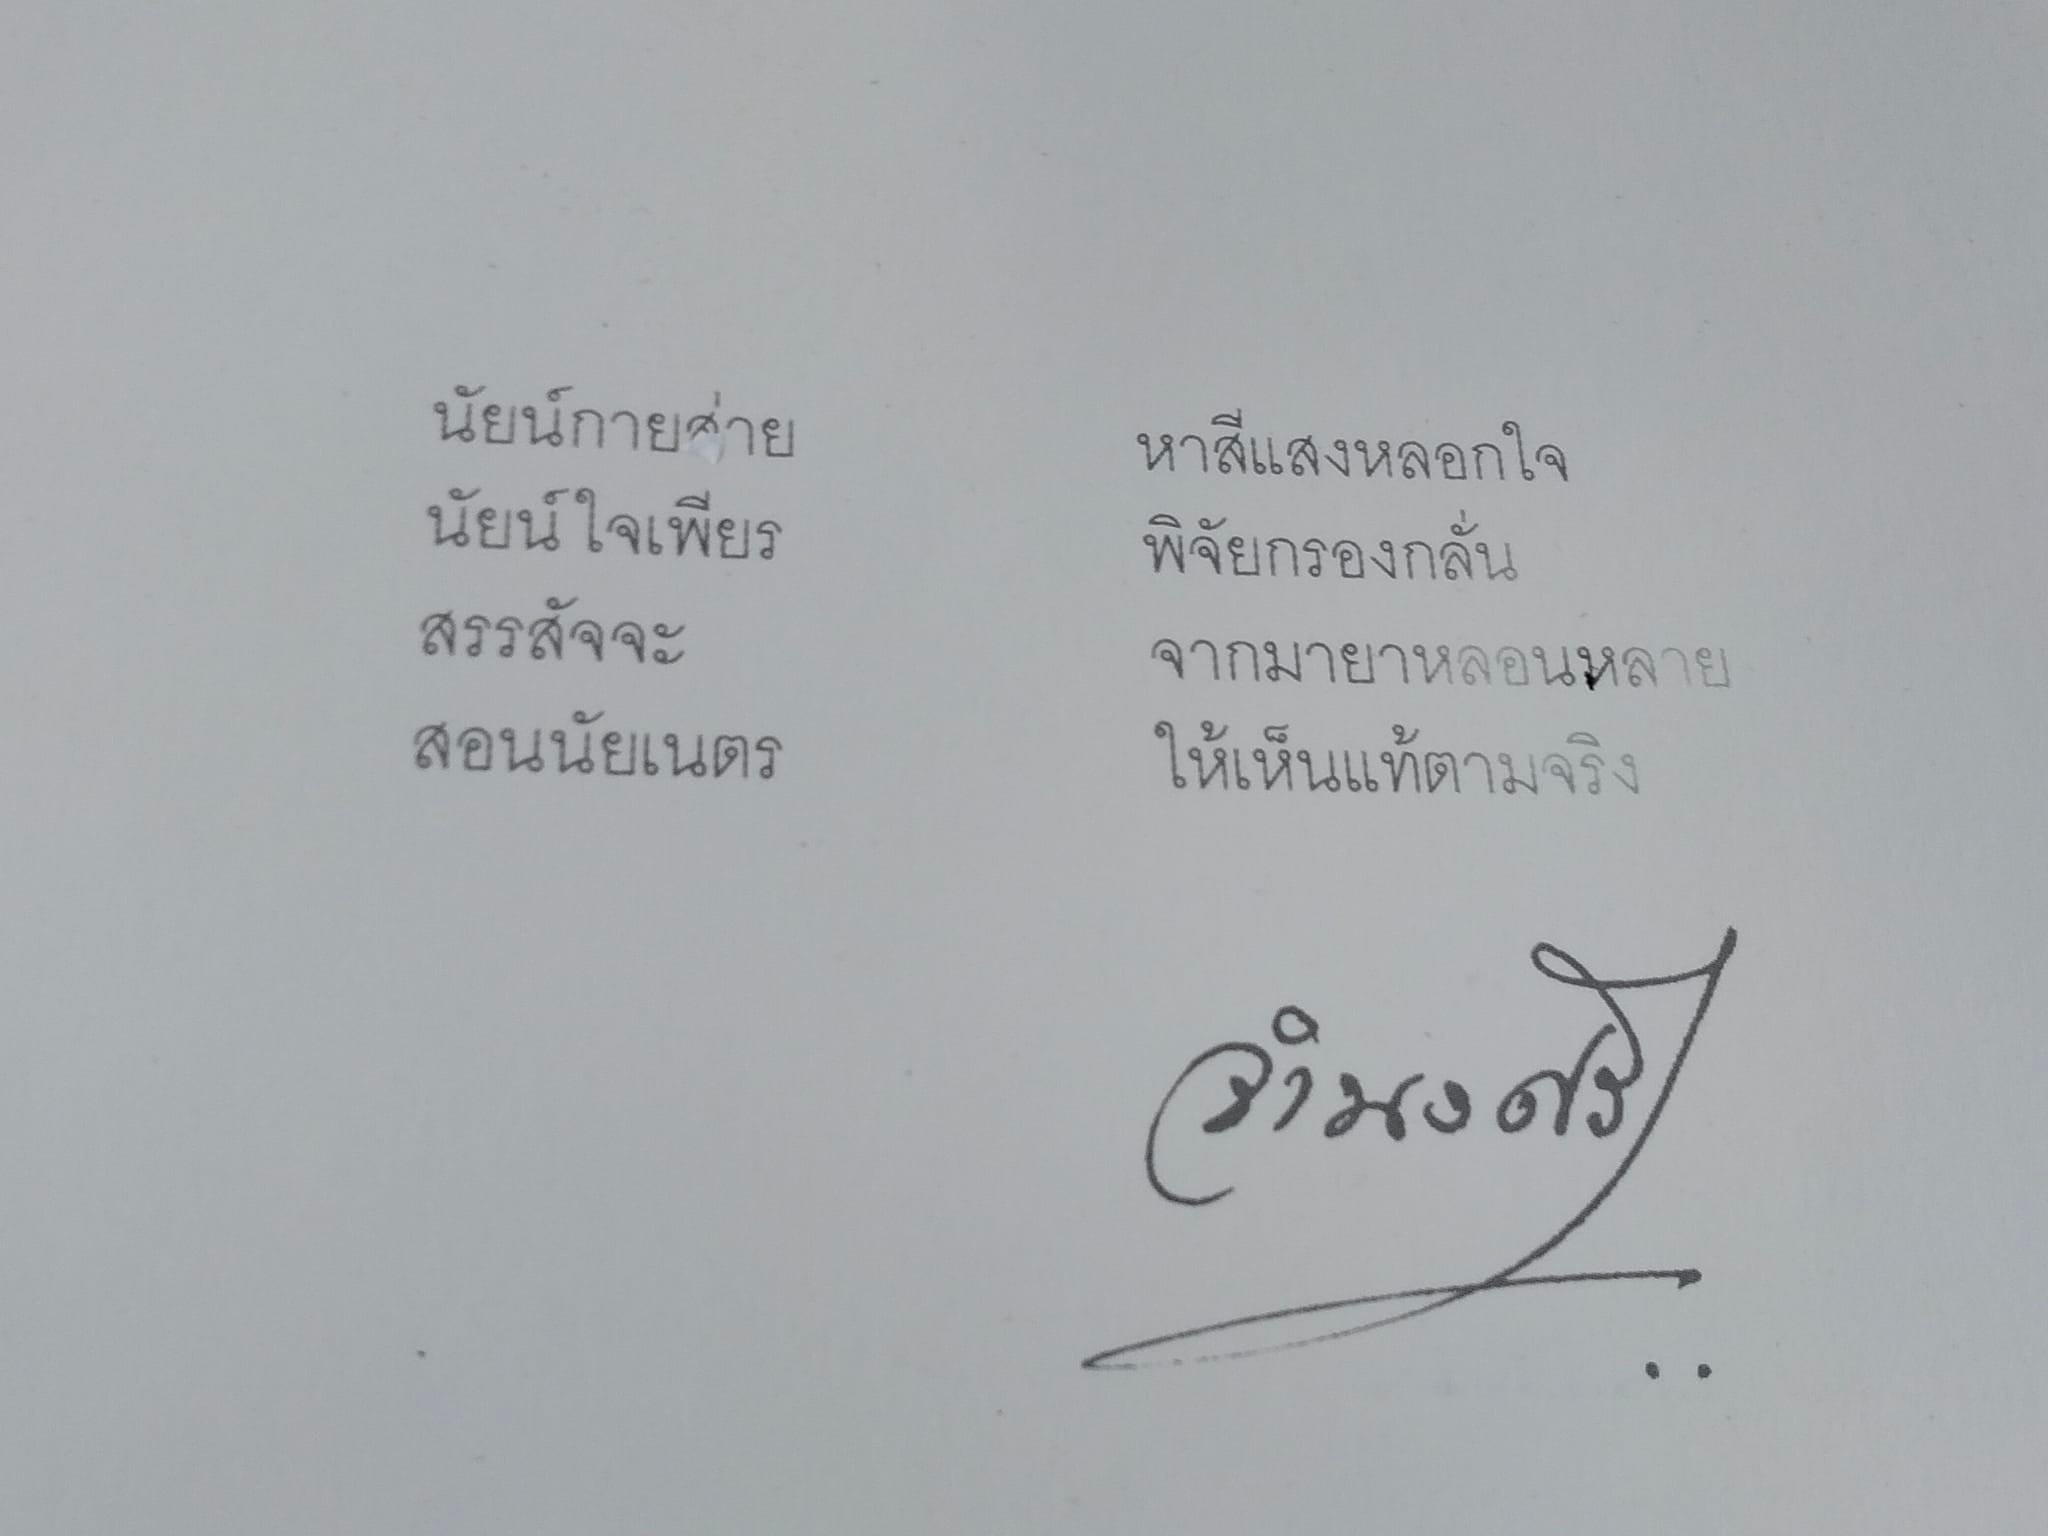 นัยน์กายส่าย หาสีแสงหลอกใจ
นัยน์ใจเพียร พิจัยกรองกลั่น
สรรสัจจะ จากมายาหลอนหลาย
สอนนัยเนตร ให้เห็นแท้ตามจริง